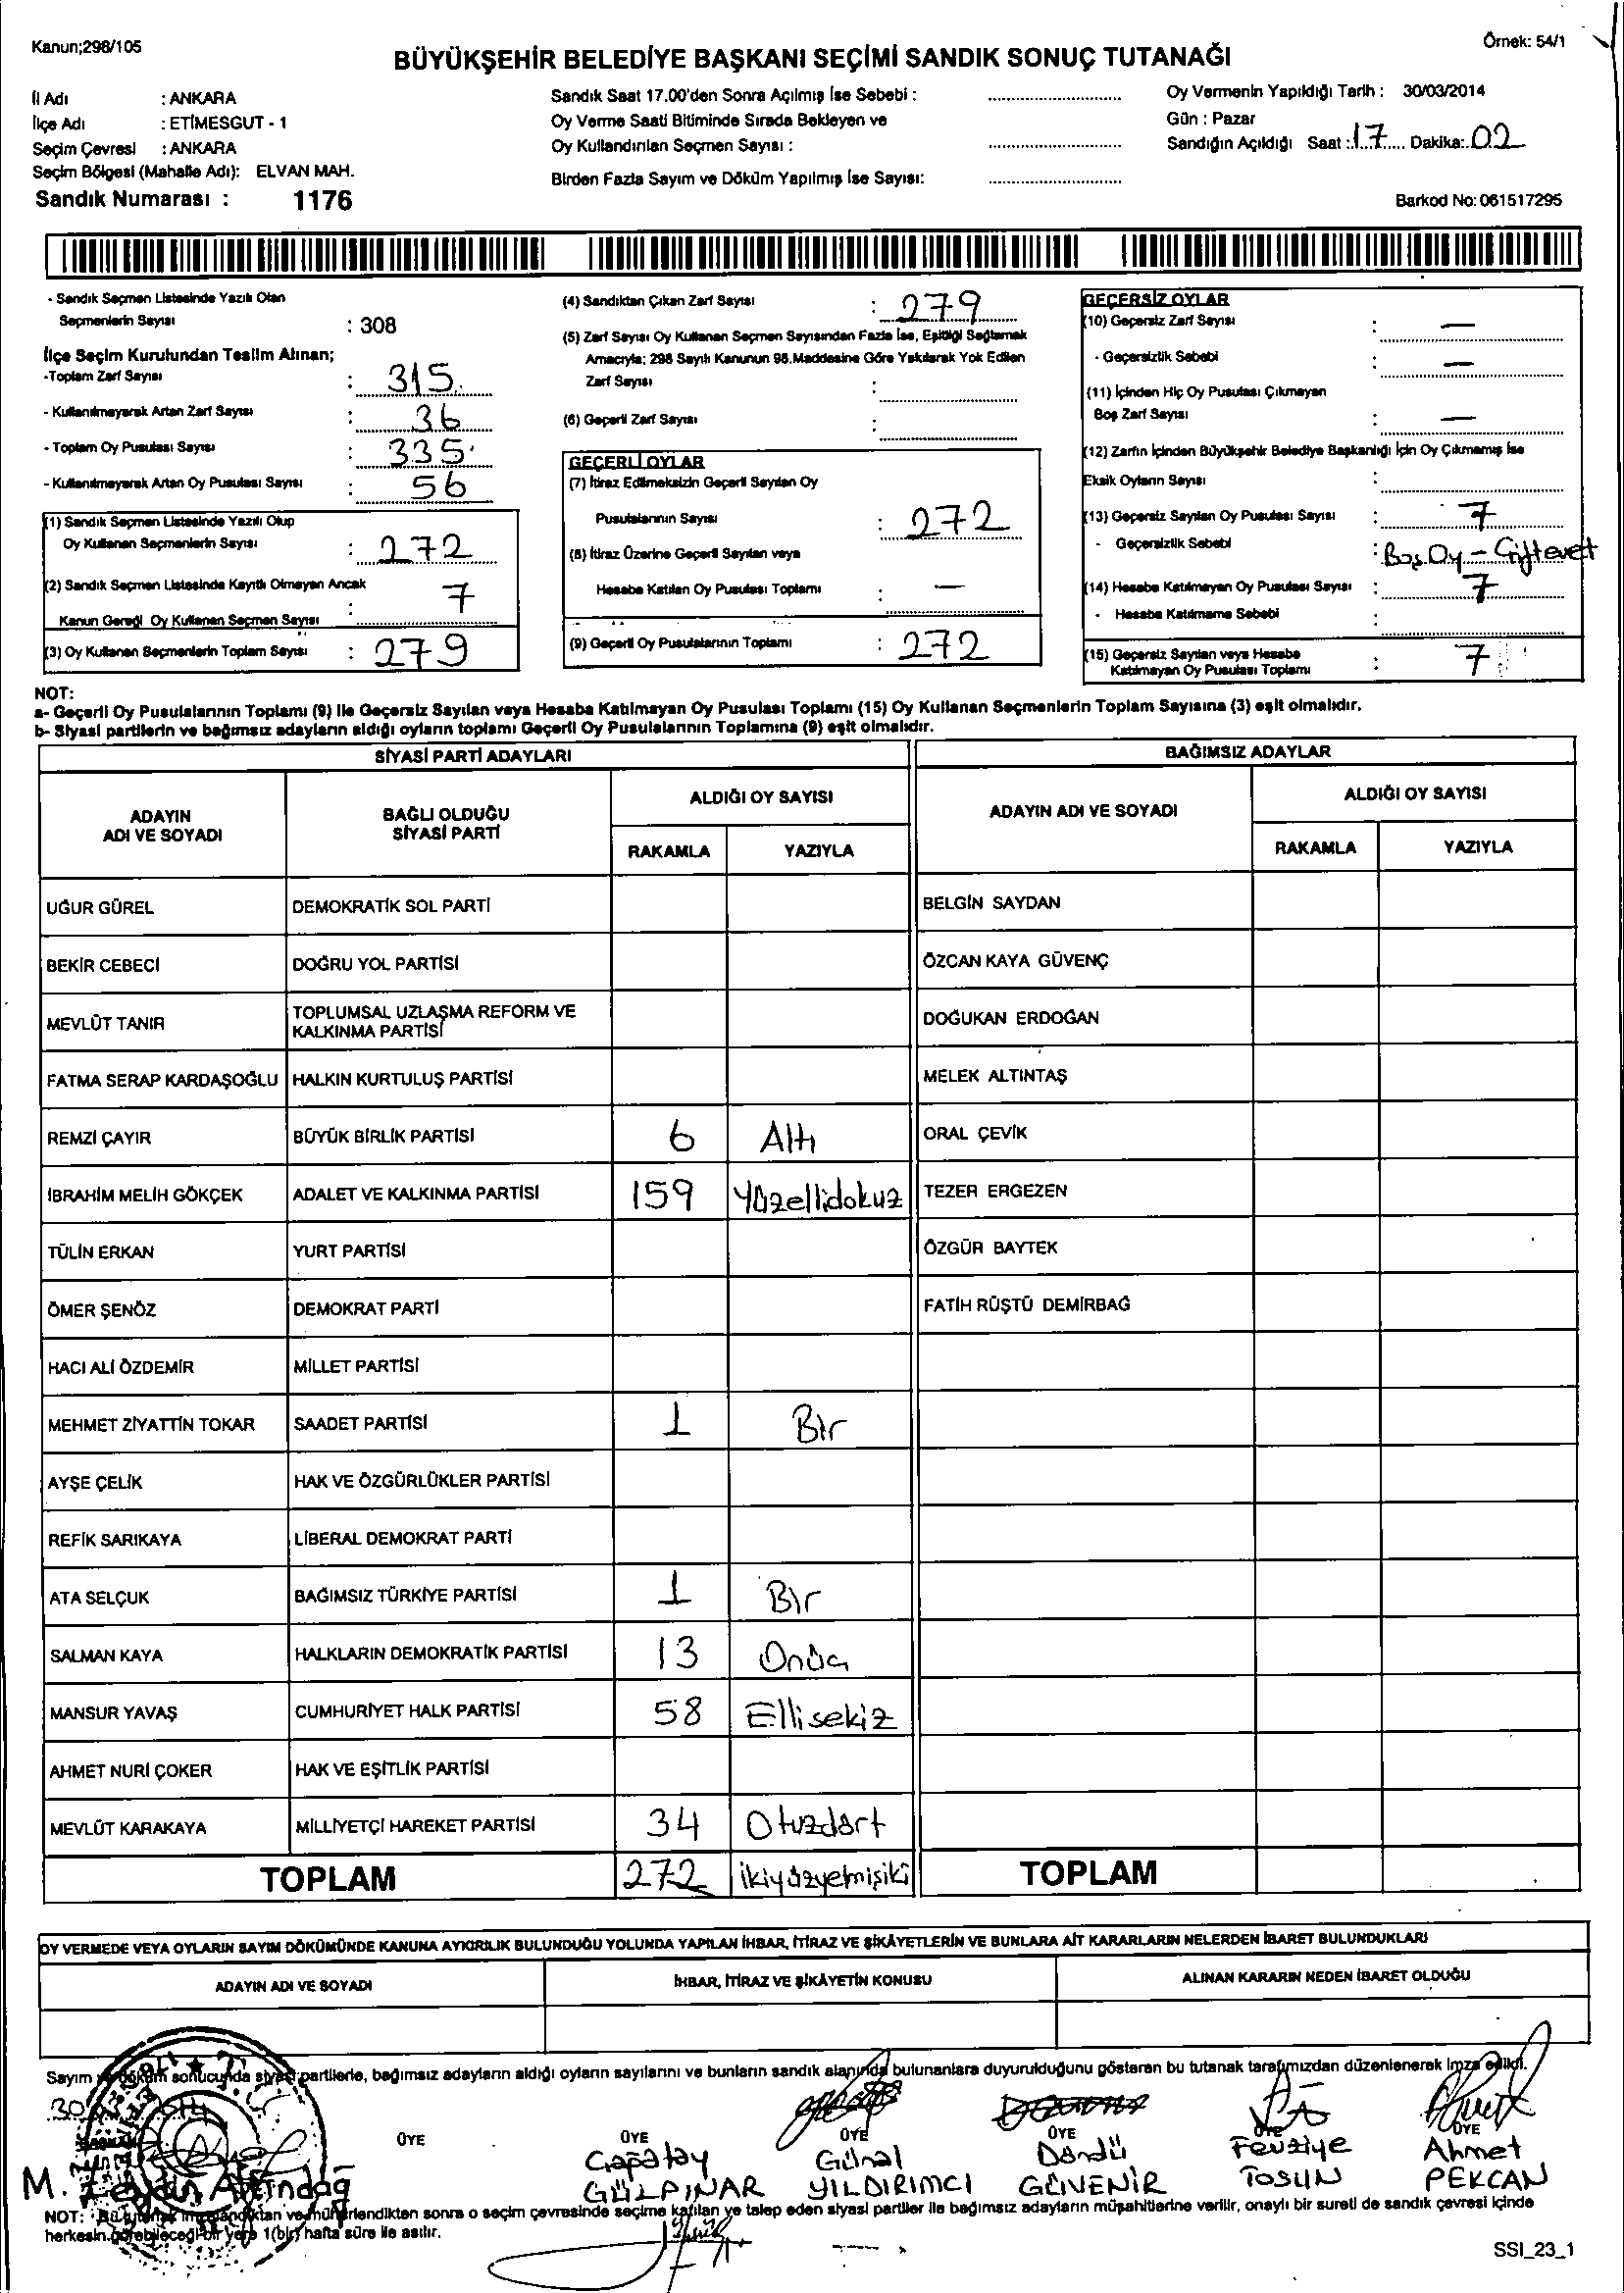 Kanun;298/105
BÜYÜKŞEHİR BELEDİYE BAŞKANI SEÇİMİ SANDIK SONUÇ TUTANAĞI
Örnek: 54/1
İl Adı : ANKARA
İlçe Adı : ETİMESGUT - 1
Seçim Çevresi : ANKARA
Seçim Bölgesi (Mahalle Adı): ELVAN MAH.
Sandık Numarası : 1176
Sandık Saat 17.00'den Sonra Açılmış İse Sebebi :
Oy Verme Saati Bitiminde Sırada Bekleyen ve
Oy Kullandırılan Seçmen Sayısı :
Birden Fazla Sayım ve Döküm Yapılmış İse Sayısı:
Oy Vermenin Yapıldığı Tarih : 30/03/2014
Gün : Pazar
Sandığın Açıldığı Saat : 17 Dakika: 02
Barkod No: 061517295
- Sandık Seçmen Listesinde Yazılı Olan
Seçmenlerin Sayısı : 308
İlçe Seçim Kurulundan Teslim Alınan;
-Toplam Zarf Sayısı : 315
- Kullanılmayarak Artan Zarf Sayısı : 36
- Toplam Oy Pusulası Sayısı : 335
- Kullanılmayarak Artan Oy Pusulası Sayısı : 56
(1) Sandık Seçmen Listesinde Yazılı Olup
Oy Kullanan Seçmenlerin Sayısı : 272
(2) Sandık Seçmen Listesinde Kayıtlı Olmayan Ancak
Kanun Gereği Oy Kullanan Seçmen Sayısı : 7
(3) Oy Kullanan Seçmenlerin Toplam Sayısı : 279
(4) Sandıktan Çıkan Zarf Sayısı : 279
(5) Zarf Sayısı Oy Kullanan Seçmen Sayısından Fazla İse, Eşitliği Sağlamak
Amacıyla; 298 Sayılı Kanunun 98.Maddesine Göre Yakılarak Yok Edilen
Zarf Sayısı :
(6) Geçerli Zarf Sayısı :
GEÇERLİ OYLAR
(7) İtiraz Edilmeksizin Geçerli Sayılan Oy
Pusulalarının Sayısı : 272
(8) İtiraz Üzerine Geçerli Sayılan veya
Hesaba Katılan Oy Pusulası Toplamı : —
(9) Geçerli Oy Pusulalarının Toplamı : 272
GEÇERSİZ OYLAR
(10) Geçersiz Zarf Sayısı : —
- Geçersizlik Sebebi : —
(11) İçinden Hiç Oy Pusulası Çıkmayan
Boş Zarf Sayısı : —
(12) Zarfın İçinden Büyükşehir Belediye Başkanlığı İçin Oy Çıkmamış İse
Eksik Oyların Sayısı :
(13) Geçersiz Sayılan Oy Pusulası Sayısı : 7
- Geçersizlik Sebebi : Boş Oy - Çiftevet
(14) Hesaba Katılmayan Oy Pusulası Sayısı : 7
- Hesaba Katılmama Sebebi :
(15) Geçersiz Sayılan veya Hesaba
Katılmayan Oy Pusulası Toplamı : 7
NOT:
a- Geçerli Oy Pusulalarının Toplamı (9) ile Geçersiz Sayılan veya Hesaba Katılmayan Oy Pusulası Toplamı (15) Oy Kullanan Seçmenlerin Toplam Sayısına (3) eşit olmalıdır.
b- Siyasi partilerin ve bağımsız adayların aldığı oyların toplamı Geçerli Oy Pusulalarının Toplamına (9) eşit olmalıdır.
SİYASİ PARTİ ADAYLARI
BAĞIMSIZ ADAYLAR
ADAYIN ADI VE SOYADI
BAĞLI OLDUĞU SİYASİ PARTİ
ALDIĞI OY SAYISI
RAKAMLA YAZIYLA
ADAYIN ADI VE SOYADI
ALDIĞI OY SAYISI
RAKAMLA YAZIYLA
UĞUR GÜREL DEMOKRATİK SOL PARTİ BELGİN SAYDAN
BEKİR CEBECİ DOĞRU YOL PARTİSİ ÖZCAN KAYA GÜVENÇ
MEVLÜT TANIR TOPLUMSAL UZLAŞMA REFORM VE KALKINMA PARTİSİ DOĞUKAN ERDOĞAN
FATMA SERAP KARDAŞOĞLU HALKIN KURTULUŞ PARTİSİ MELEK ALTINTAŞ
REMZİ ÇAYIR BÜYÜK BİRLİK PARTİSİ 6 Altı ORAL ÇEVİK
İBRAHİM MELİH GÖKÇEK ADALET VE KALKINMA PARTİSİ 159 Yüzellidokuz TEZER ERGEZEN
TÜLİN ERKAN YURT PARTİSİ ÖZGÜR BAYTEK
ÖMER ŞENÖZ DEMOKRAT PARTİ FATİH RÜŞTÜ DEMİRBAĞ
HACI ALİ ÖZDEMİR MİLLET PARTİSİ
MEHMET ZİYATTİN TOKAR SAADET PARTİSİ 1 Bir
AYŞE ÇELİK HAK VE ÖZGÜRLÜKLER PARTİSİ
REFİK SARIKAYA LİBERAL DEMOKRAT PARTİ
ATA SELÇUK BAĞIMSIZ TÜRKİYE PARTİSİ 1 Bir
SALMAN KAYA HALKLARIN DEMOKRATİK PARTİSİ 13 Onüç
MANSUR YAVAŞ CUMHURİYET HALK PARTİSİ 58 Ellisekiz
AHMET NURİ ÇOKER HAK VE EŞİTLİK PARTİSİ
MEVLÜT KARAKAYA MİLLİYETÇİ HAREKET PARTİSİ 34 Otuzdört
TOPLAM 272 ikiyüzyetmişiki TOPLAM
OY VERMEDE VEYA OYLARIN SAYIM DÖKÜMÜNDE KANUNA AYKIRILIK BULUNDUĞU YOLUNDA YAPILAN İHBAR, İTİRAZ VE ŞİKÂYETLERİN VE BUNLARA AİT KARARLARIN NELERDEN İBARET BULUNDUKLARI
ADAYIN ADI VE SOYADI İHBAR, İTİRAZ VE ŞİKÂYETİN KONUSU ALINAN KARARIN NEDEN İBARET OLDUĞU
Sayım ve döküm sonucunda siyasi partilerle, bağımsız adayların aldığı oyların sayılarını ve bunların sandık alanında bulunanlara duyurulduğunu gösteren bu tutanak tarafımızdan düzenlenerek imza edildi.
ÜYE ÜYE ÜYE ÜYE ÜYE ÜYE
Günal YILDIRIMCI
Döndü GÜVENİR
Fevziye TOSUN
Ahmet PEKCAN
GÜLPINAR
NOT: Bu tutanak imzalandıktan ve mühürlendikten sonra o seçim çevresinde seçime katılan ve talep eden siyasi partiler ile bağımsız adayların müşahitlerine verilir, onaylı bir sureti de sandık çevresi içinde
herkesin görebileceği bir yere 1(bir) hafta süre ile asılır.
SSI_23_1